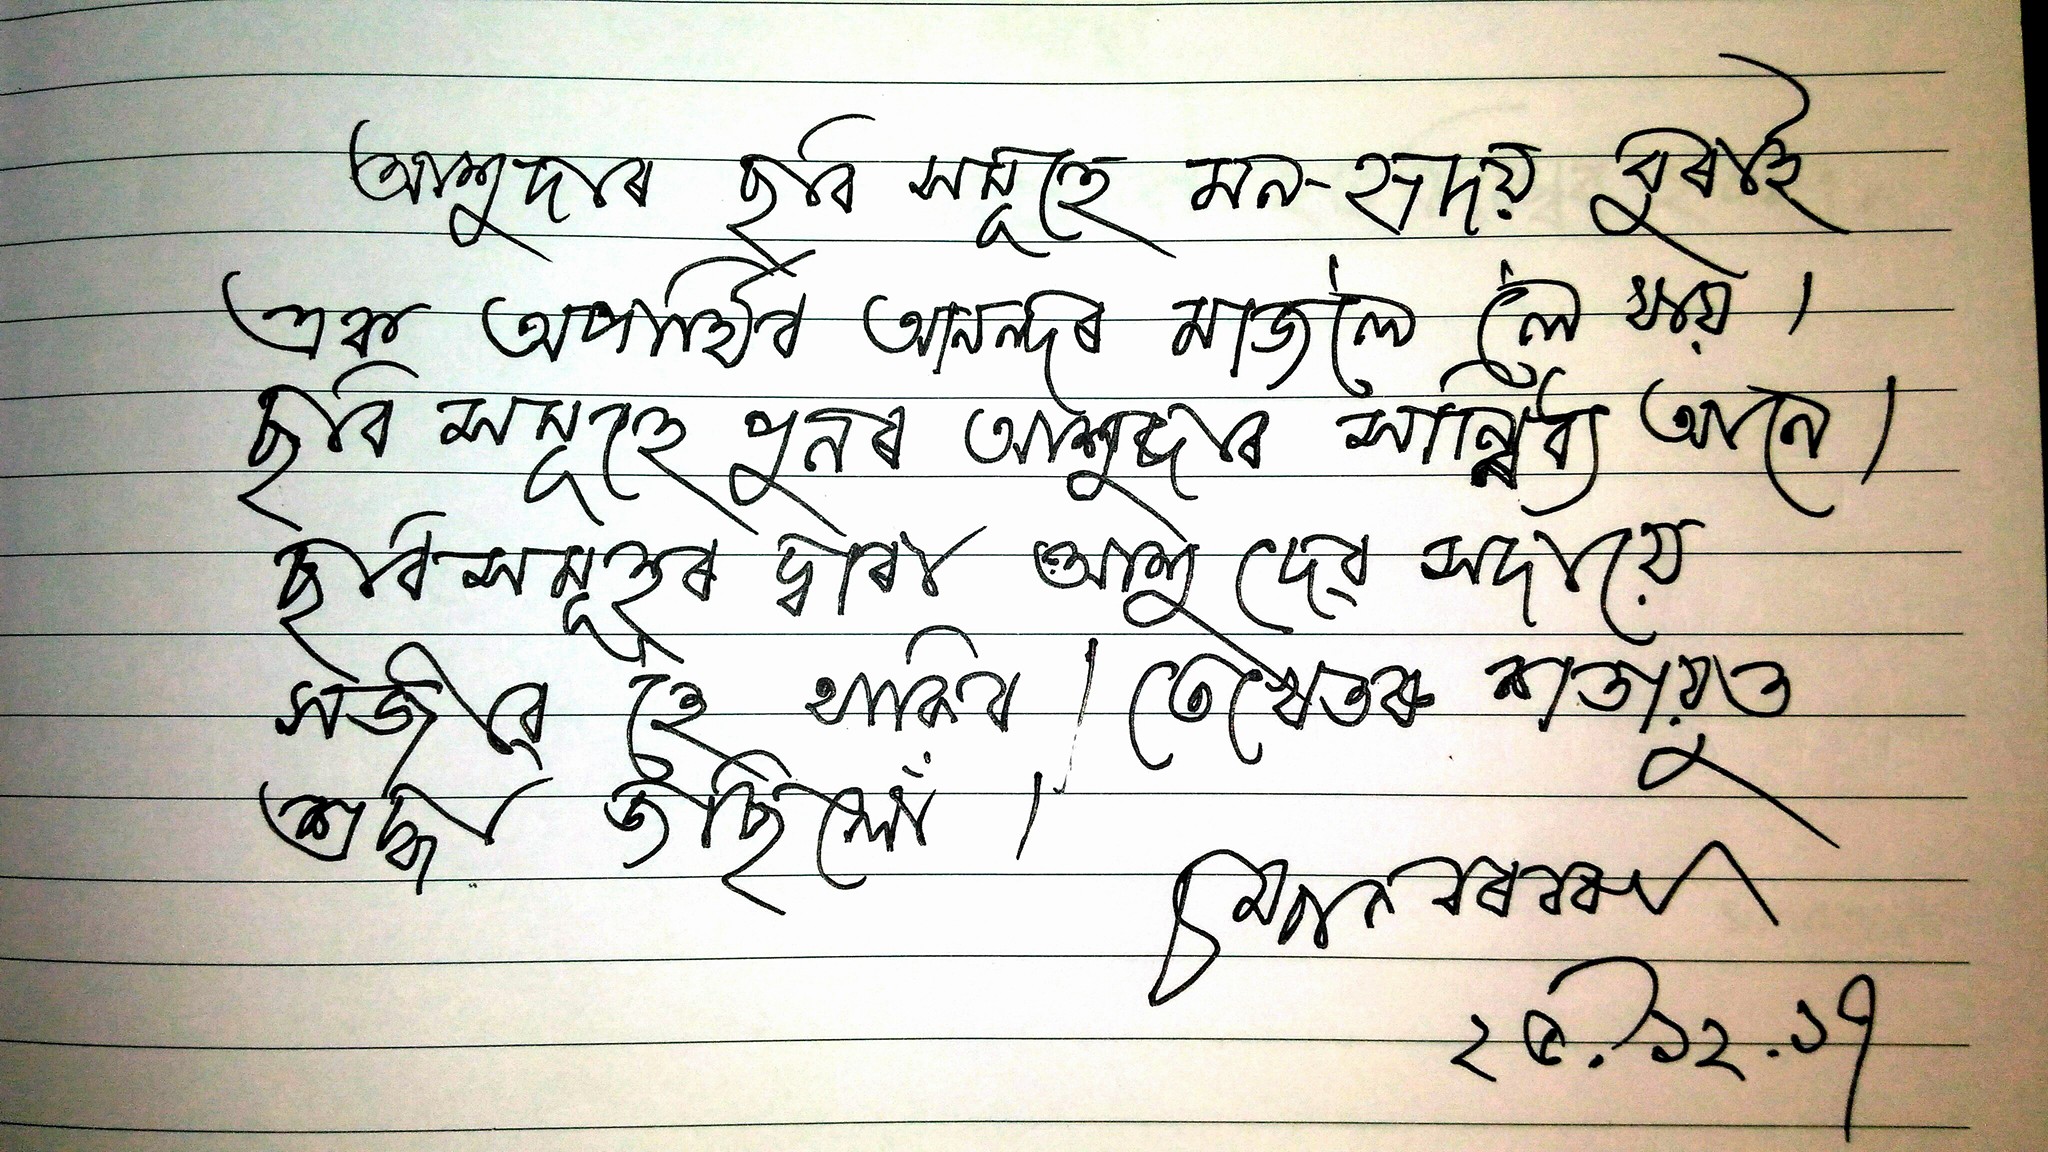 আশুদাৰ ছবি সমূহে মন-হৃদয় বুৰাই
এক অপাৰ্থিৱ আনন্দৰ মাজলৈ লৈ যায়।
ছবি সমূহে পুনৰ আশুদাৰ সান্নিধ্য আনে।
ছবি সমূহৰ দ্বাৰা আশু দেৱ সদায়ে
সজীৱ হৈ থাকিব। তেখেতৰ শতায়ুত
শ্ৰদ্ধা জাছিলোঁ।
বৰবৰুৱা
২৫.১২.১৭